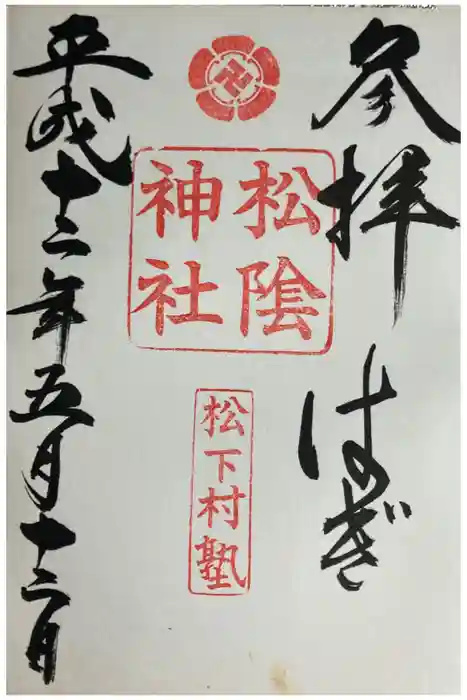 参拝　はぎ
松陰
神社
松下村塾
平成十二年五月十三日